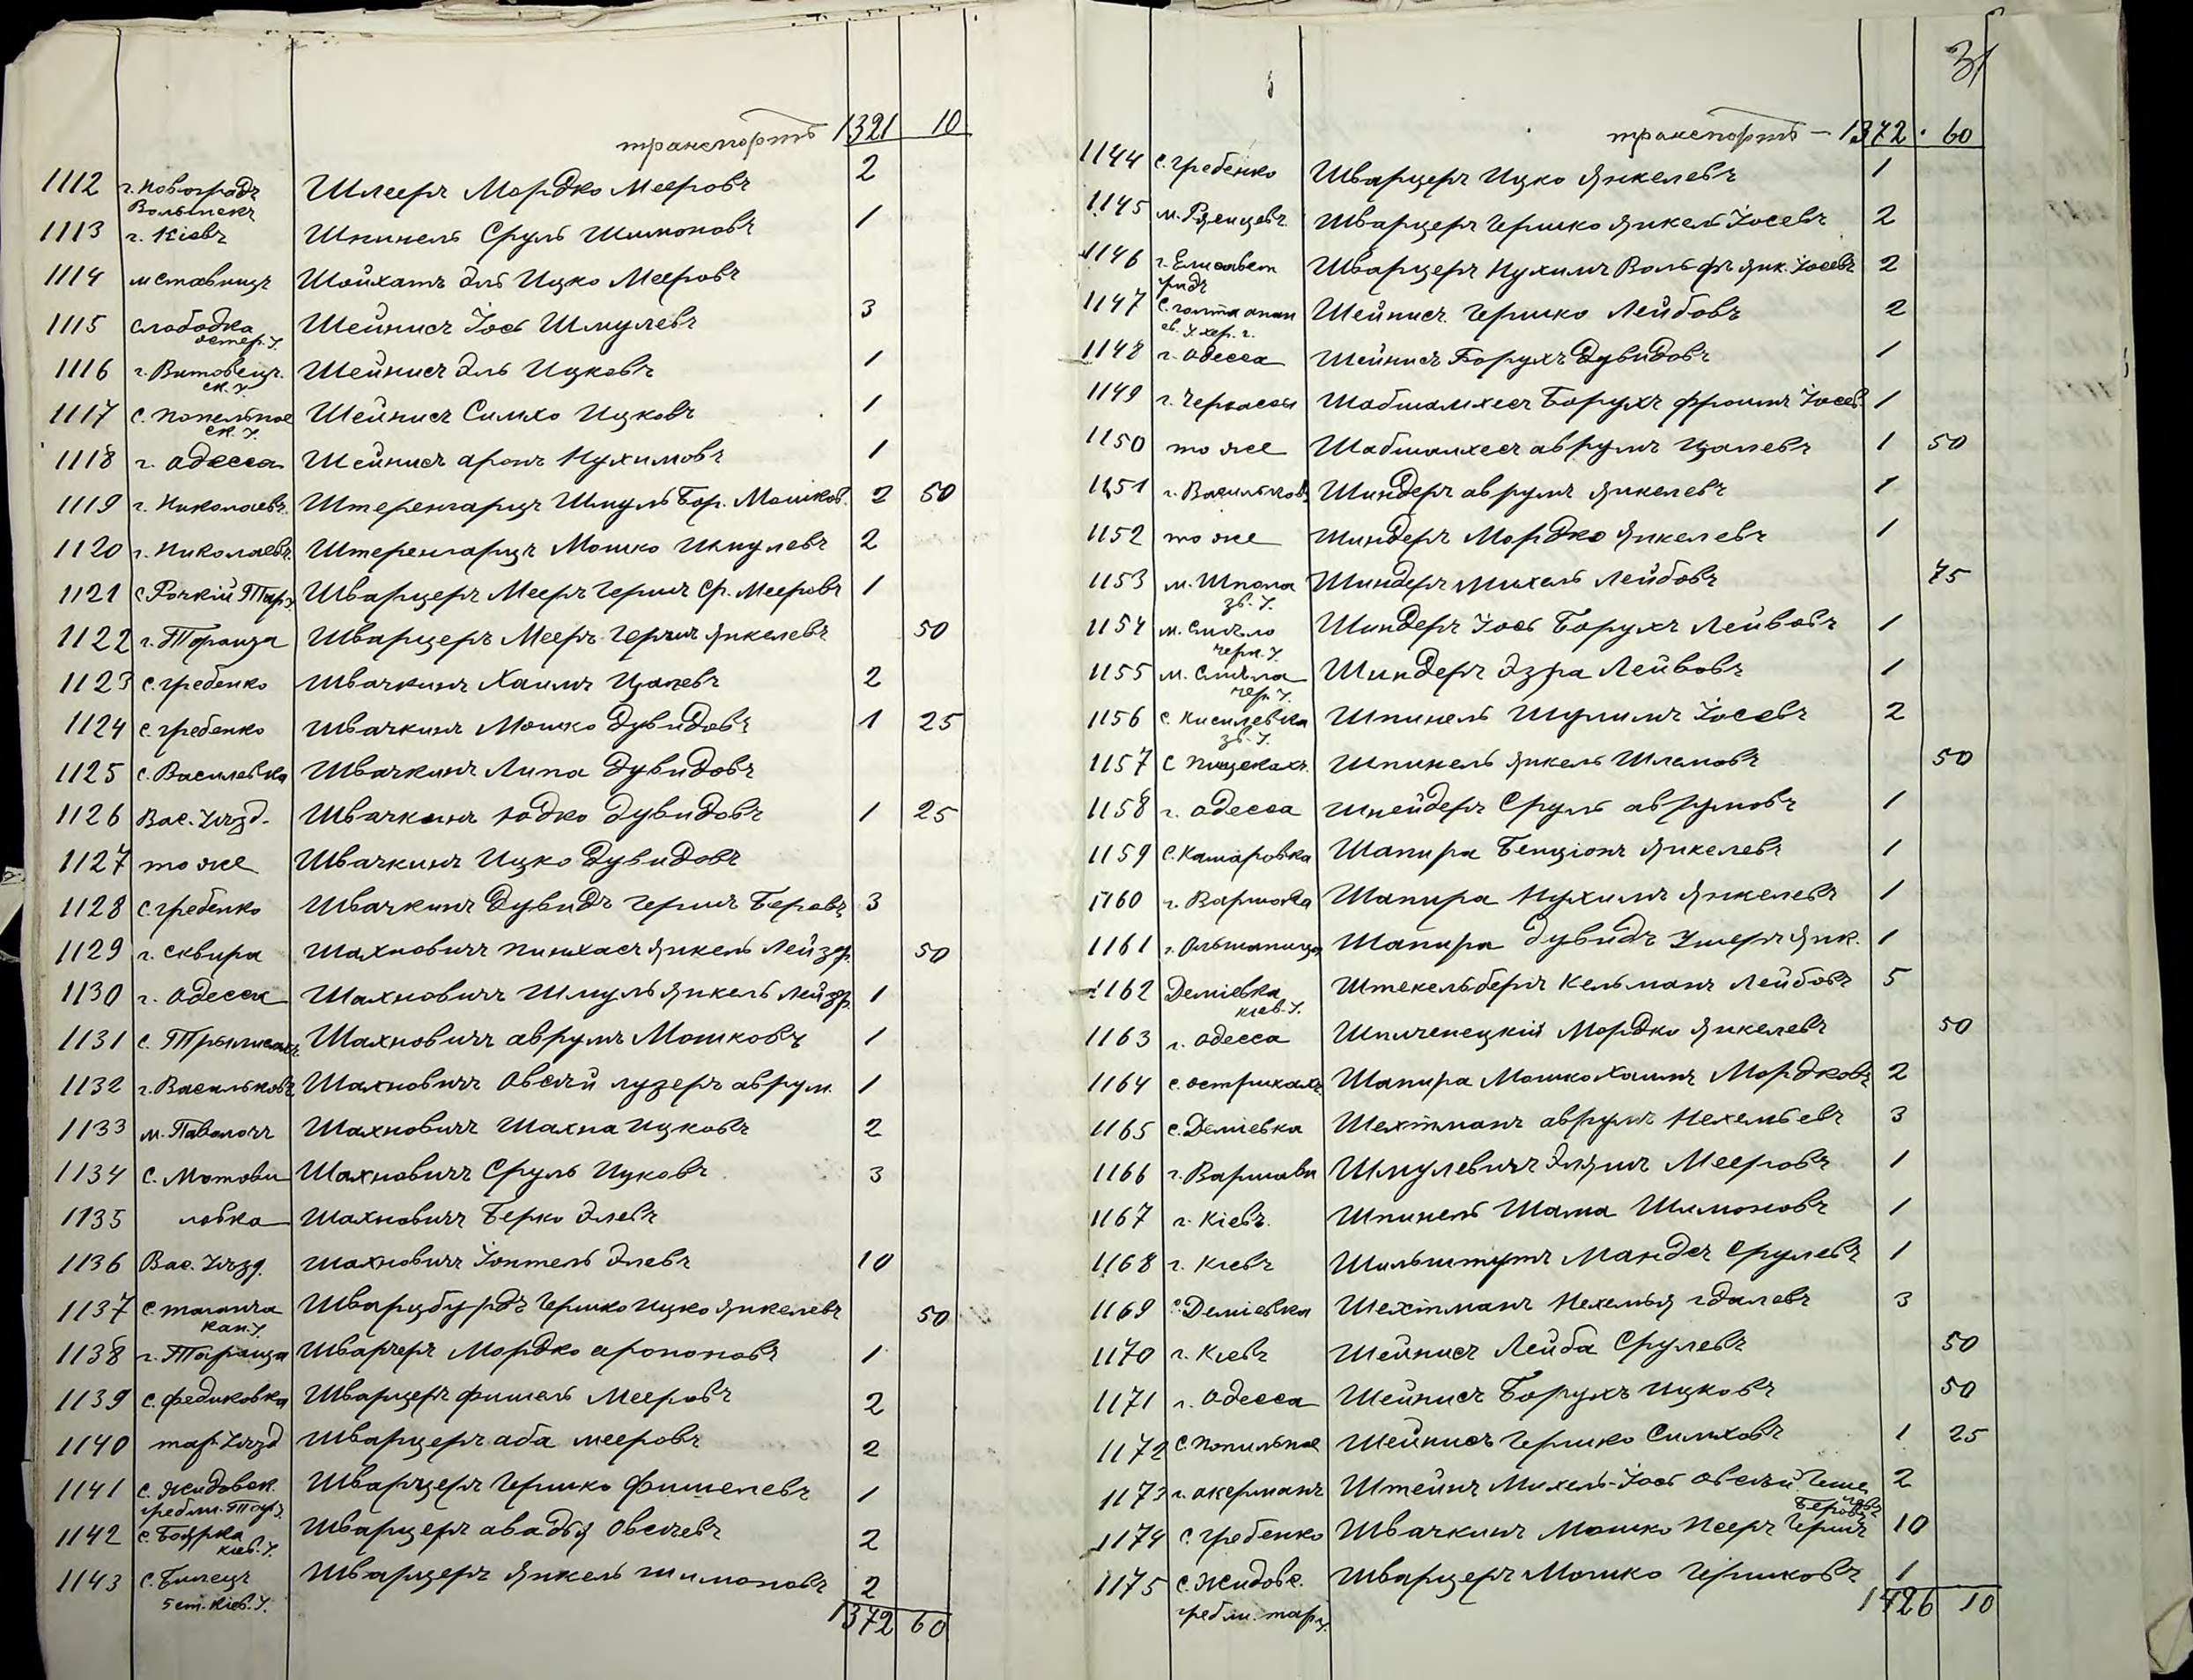 транспортъ 1321 10
1112 г. Новоградъ Шлееръ Мордко Мееровъ 2
Волынскъ
1113 г. Кіевъ Шпинель Сруль Шимоновъ 1
1114 м Ставищъ Шойхатъ Эль Ицко Мееровъ
1115 Слободка Шейнисъ Іось Шмулевъ 3
остер. У.
1116 г. Витовецъ Шейнисъ Эль Ицковъ 1
ск. У.
1117 С. Попельное Шейнисъ Симхо Ицковъ 1
ск. У.
1118 г. Одесса Шейнисъ Аронъ Нухимовъ 1
1119 г. Николаевъ Штеренгарцъ Шмуль Бор. Мошков. 2 50
1120 г. Николаевъ Штеренгарцъ Мошко Шмулевъ 2
1121 Шварцеръ Мееръ Гершъ Ср. Мееровъ 1
1122 г. Тараща Шварцеръ Мееръ Гершъ Янкелевъ 50
1123 с. Гребенко Швачкинъ Хаимъ Цалевъ 2
1124 с. Гребенко Швачкинъ Мошко Дувидовъ 1 25
1125 с. Василевка Швачкинъ Липа Дувидовъ
1126 Вас. Уѣзд. Швачкинъ Юдко Дувидовъ 1 25
1127 тоже Швачкинъ Ицко Дувидовъ
1128 с. Гребенко Швачкинъ Дувидъ Гершъ Беровъ 3
1129 г. Сквира Шахновичъ Пинхасъ Янкель Лейзер. 50
1130 г. Одесса Шахновичъ Шмуль Янкель Лейзер. 1
1131 с. Трылисахъ Шахновичъ Аврумъ Мошковъ 1
1132 г. Васильковъ Шахновичъ Овсѣй Лузеръ Аврум. 1
1133 м. Паволочъ Шахновичъ Шахна Ицковъ 2
1134 С. Мотови Шахновичъ Сруль Ицковъ 3
1135 ловка Шахновичъ Берко Элевъ
1136 Вас. Уѣзд. Шахновичъ Іонтель Элевъ 10
1137 с. Таганча Шварцбурдъ Гершко Ицко Янкелевъ 50
Кан. У.
1138 г. Тараща Шварцеръ Мордко Ароновъ 1
1139 с. Федюковка Шварцеръ Фишель Мееровъ 2
1140 Тар. Уѣзд Шварцеръ Аба Мееровъ 2
1141 с. Жидовск. Шварцеръ Гершко Фишелевъ 1
гребли. Тар. У.
1142 с. Боярка Шварцеръ Авадья Овсѣевъ 2
Кіев. У.
1143 Шварцеръ Янкель Шимоновъ 2
5 ст. Кіев. У.
1372 60
31
транспортъ – 1372 . 60
1144 с. Гребенко Шварцеръ Ицко Янкелевъ 1
1145 м. Ржищевъ Шварцеръ Гершко Янкель Іосевъ 2
1146 г. Елисавет Шварцеръ Нухимъ Вольфъ Янк. Іосевъ 2
градъ
1147 с. Голта анан Шейнисъ Гершко Лейбовъ 2
ев. У. хер. г.
1148 г. Одесса Шейнисъ Борухъ Дувидовъ 1
1149 г. Черкасы Шабшаихесъ Борухъ Фроимъ Іосев. 1
1150 тоже Шабшаихесъ Аврумъ Цалевъ 1 50
1151 г. Васильковъ Шиндеръ Аврумъ Янкелевъ 1
1152 тоже Шиндеръ Мордко Янкелевъ 1
1153 м. Шпола Шиндеръ Михель Лейбовъ 75
зв. У.
1154 м. Смѣло Шиндеръ Іось Борухъ Лейбовъ 1
черк. У.
1155 м. Смѣла Шиндеръ Эзра Лейбовъ 1
чер. У.
1156 с. Киселевка Шпинель Шулимъ Іосевъ 2
зв. У.
1157 с Пищекахъ Шпинель Янкель Шлемовъ 50
1158 г. Одесса Шнейдеръ Сруль Аврумовъ 1
1159 с. Кашаровка Шапира Бенціонъ Янкелевъ 1
1160 г. Варшава Шапира Нухимъ Янкелевъ 1
1161 г. Ольшаница Шапира Дувидъ Ушеръ Янк. 1
1162 Деміевка Штекельберъ Кельманъ Лейбовъ 5
Кіев. У.
1163 г. Одесса Шпиченецкій Мордко Янкелевъ 50
1164 с. Острикахъ Шапира Мошко Хаимъ Мордковъ 2
1165 с. Деміевка Шехтманъ Аврумъ Нехемьевъ 3
1166 г. Варшава Шмулевичъ Эльяшъ Мееровъ 1
1167 г. Кіевъ Шпинель Шама Шимоновъ 1
1168 г. Кіевъ Шильштутъ Мандсъ Срулевъ 1
1169 с. Деміевка Шехтманъ Нехемья Гдалевъ 3
1170 г. Кіевъ Шейнисъ Лейба Срулевъ 50
1171 г. Одесса Шейнисъ Борухъ Ицковъ 50
1172 с. Попильное Шейнисъ Гершко Симховъ 1 25
1173 г. Акерманъ Штейнъ Михель-Іось Овсѣй 2
1174 с. Гребенко Швачкинъ Мошко Мееръ Гершъ Беровъ 10
1175 с. Жидовс. Шварцеръ Мошко Гершковъ 1
гребли. тар. у.
1426 10